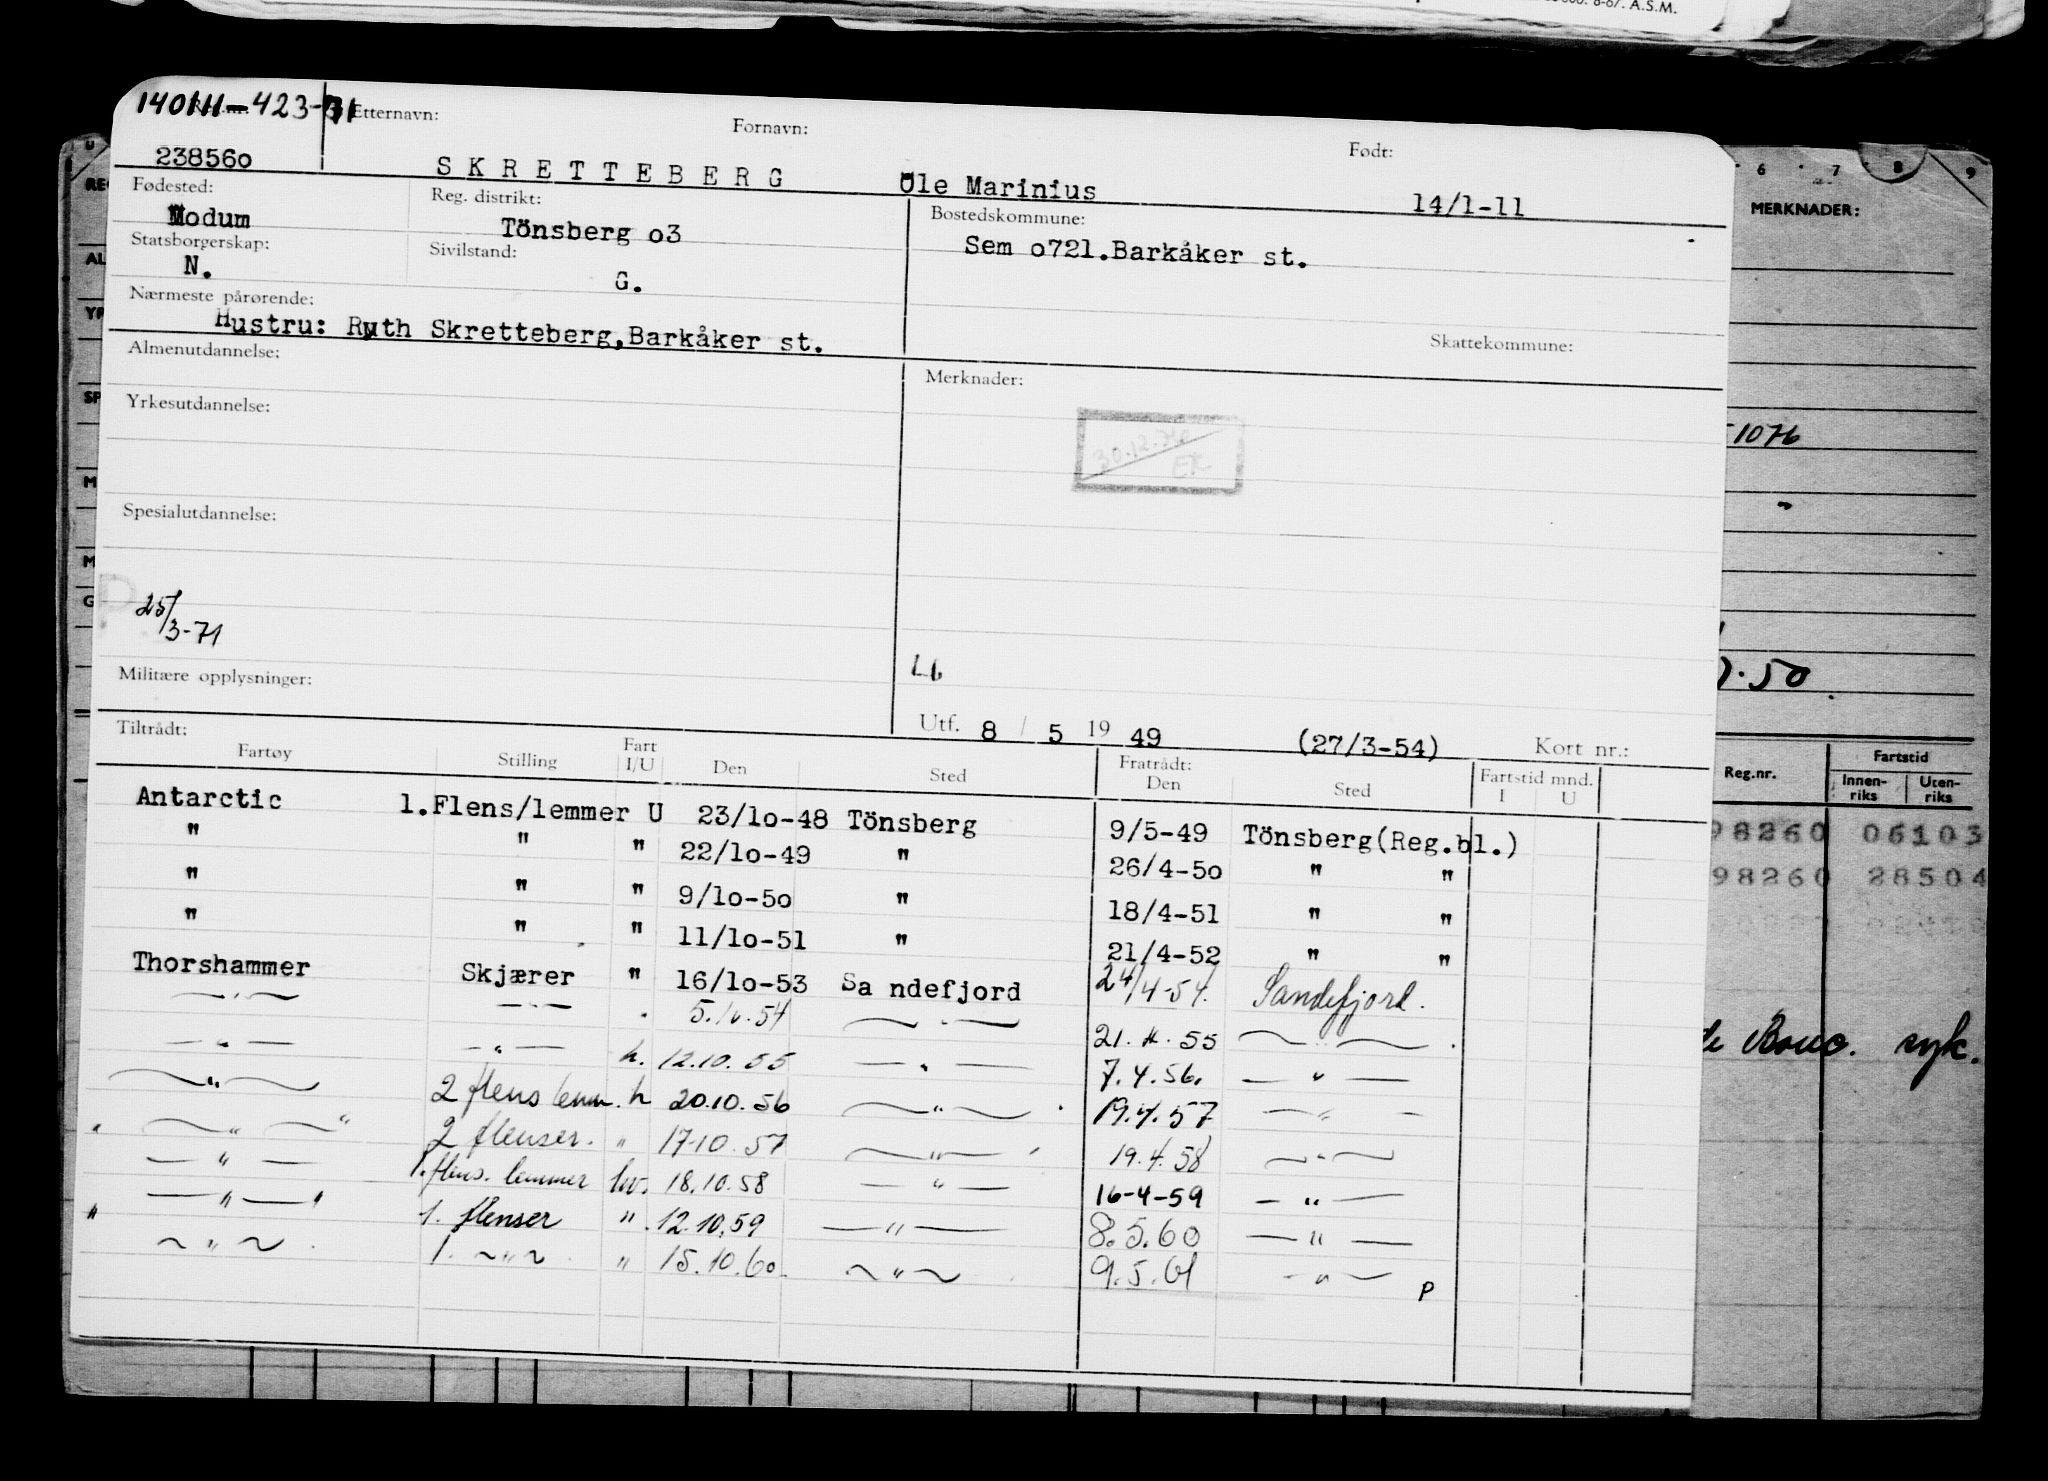 8-67. A.S.M.
140111-423-71 Etternavn: Fornavn: Født:
238560 SKRETTEBERG Ole Marinius 14/1-11
Fødested: Reg. distrikt: Bostedskommune:
Modum Tönsberg o3 Sem o721.Barkåker st.
Statsborgerskap: Sivilstand:
N. G.
Nærmeste pårørende:
Hustru: Ruth Skretteberg,Barkåker st. Skattekommune:
Almenutdannelse: Merknader:
30.12.70
EK
Yrkesutdannelse:
Spesialutdannelse:
25/3-71
Lb
Militære opplysninger:
Utf. 8 / 5 19 49 (27/3-54) Kort nr.:
Tiltrådt: Fratrådt:
Fartøy Stilling Fart I/U Den Sted Den Sted Fartstid mnd. I U
Antarctic 1.Flens/lemmer U 23/1o-48 Tönsberg 9/5-49 Tönsberg(Reg.bl.)
" " " 22/1o-49 " 26/4-5o " "
" " " 9/1o-5o " 18/4-51 " "
" " " 11/1o-51 " 21/4-52 " "
Thorshammer Skjærer " 16/1o-53 Sandefjord 24/4-54. Sandefjord.
—"— —"— 5.10.54 —"— 21.4.55 —"—
—"— —"— h. 12.10.55 —"— 7.4.56. —"—
—"— 2 flens lemm. h 20.10.56 —"— 19.4.57 —"—
—"— 2 flenser. " 17-10.57 —"— 19.4.58 —"—
—"— 1. flens. lemmer hv. 18.10.58 —"— 16-4-59 —"—
—"— 1. flenser " 12.10.59 —"— 8.5.60 —"—
—"— 1. —"— " 15.10.60 —"— 9.5.61 —"— P
6 7 8 9
MERKNADER:
1076
.50
Reg.nr. Fartstid
Innenriks Utenriks
98260 06103
98260 28504
syk.